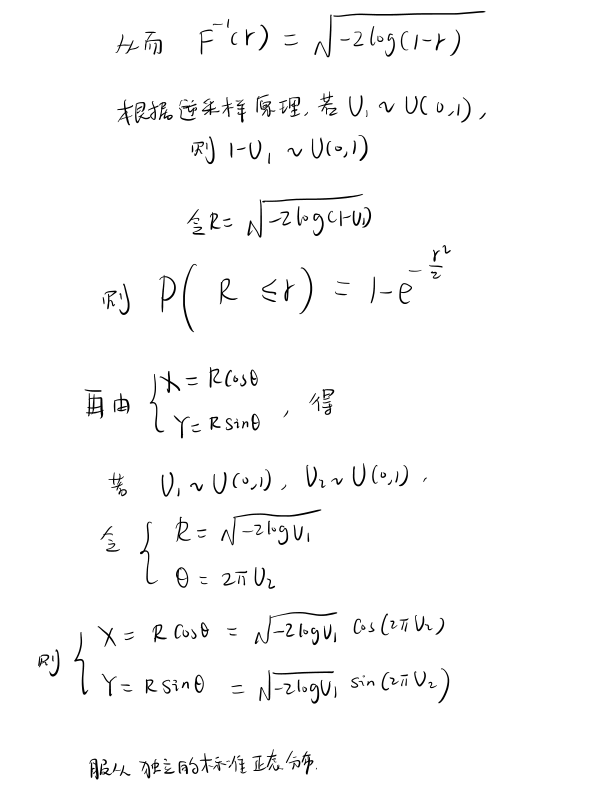 从而 F⁻¹(r) = √(-2log(1-r))
根据逆采样原理, 若 U₁ ~ U(0,1),
则 1-U₁ ~ U(0,1)
令R= √(-2log(1-U₁))
则 P( R ≤r) = 1-e^(-r²/2)
再由 { X = Rcosθ
Y= Rsinθ , 得
若 U₁ ~ U(0,1), U₂ ~ U(0,1),
令 { R = √(-2logU₁)
θ = 2πU₂
则 { X = R cosθ = √(-2logU₁) cos(2πU₂)
Y = R sinθ = √(-2logU₁) sin(2πU₂)
服从 独立的标准正态分布.